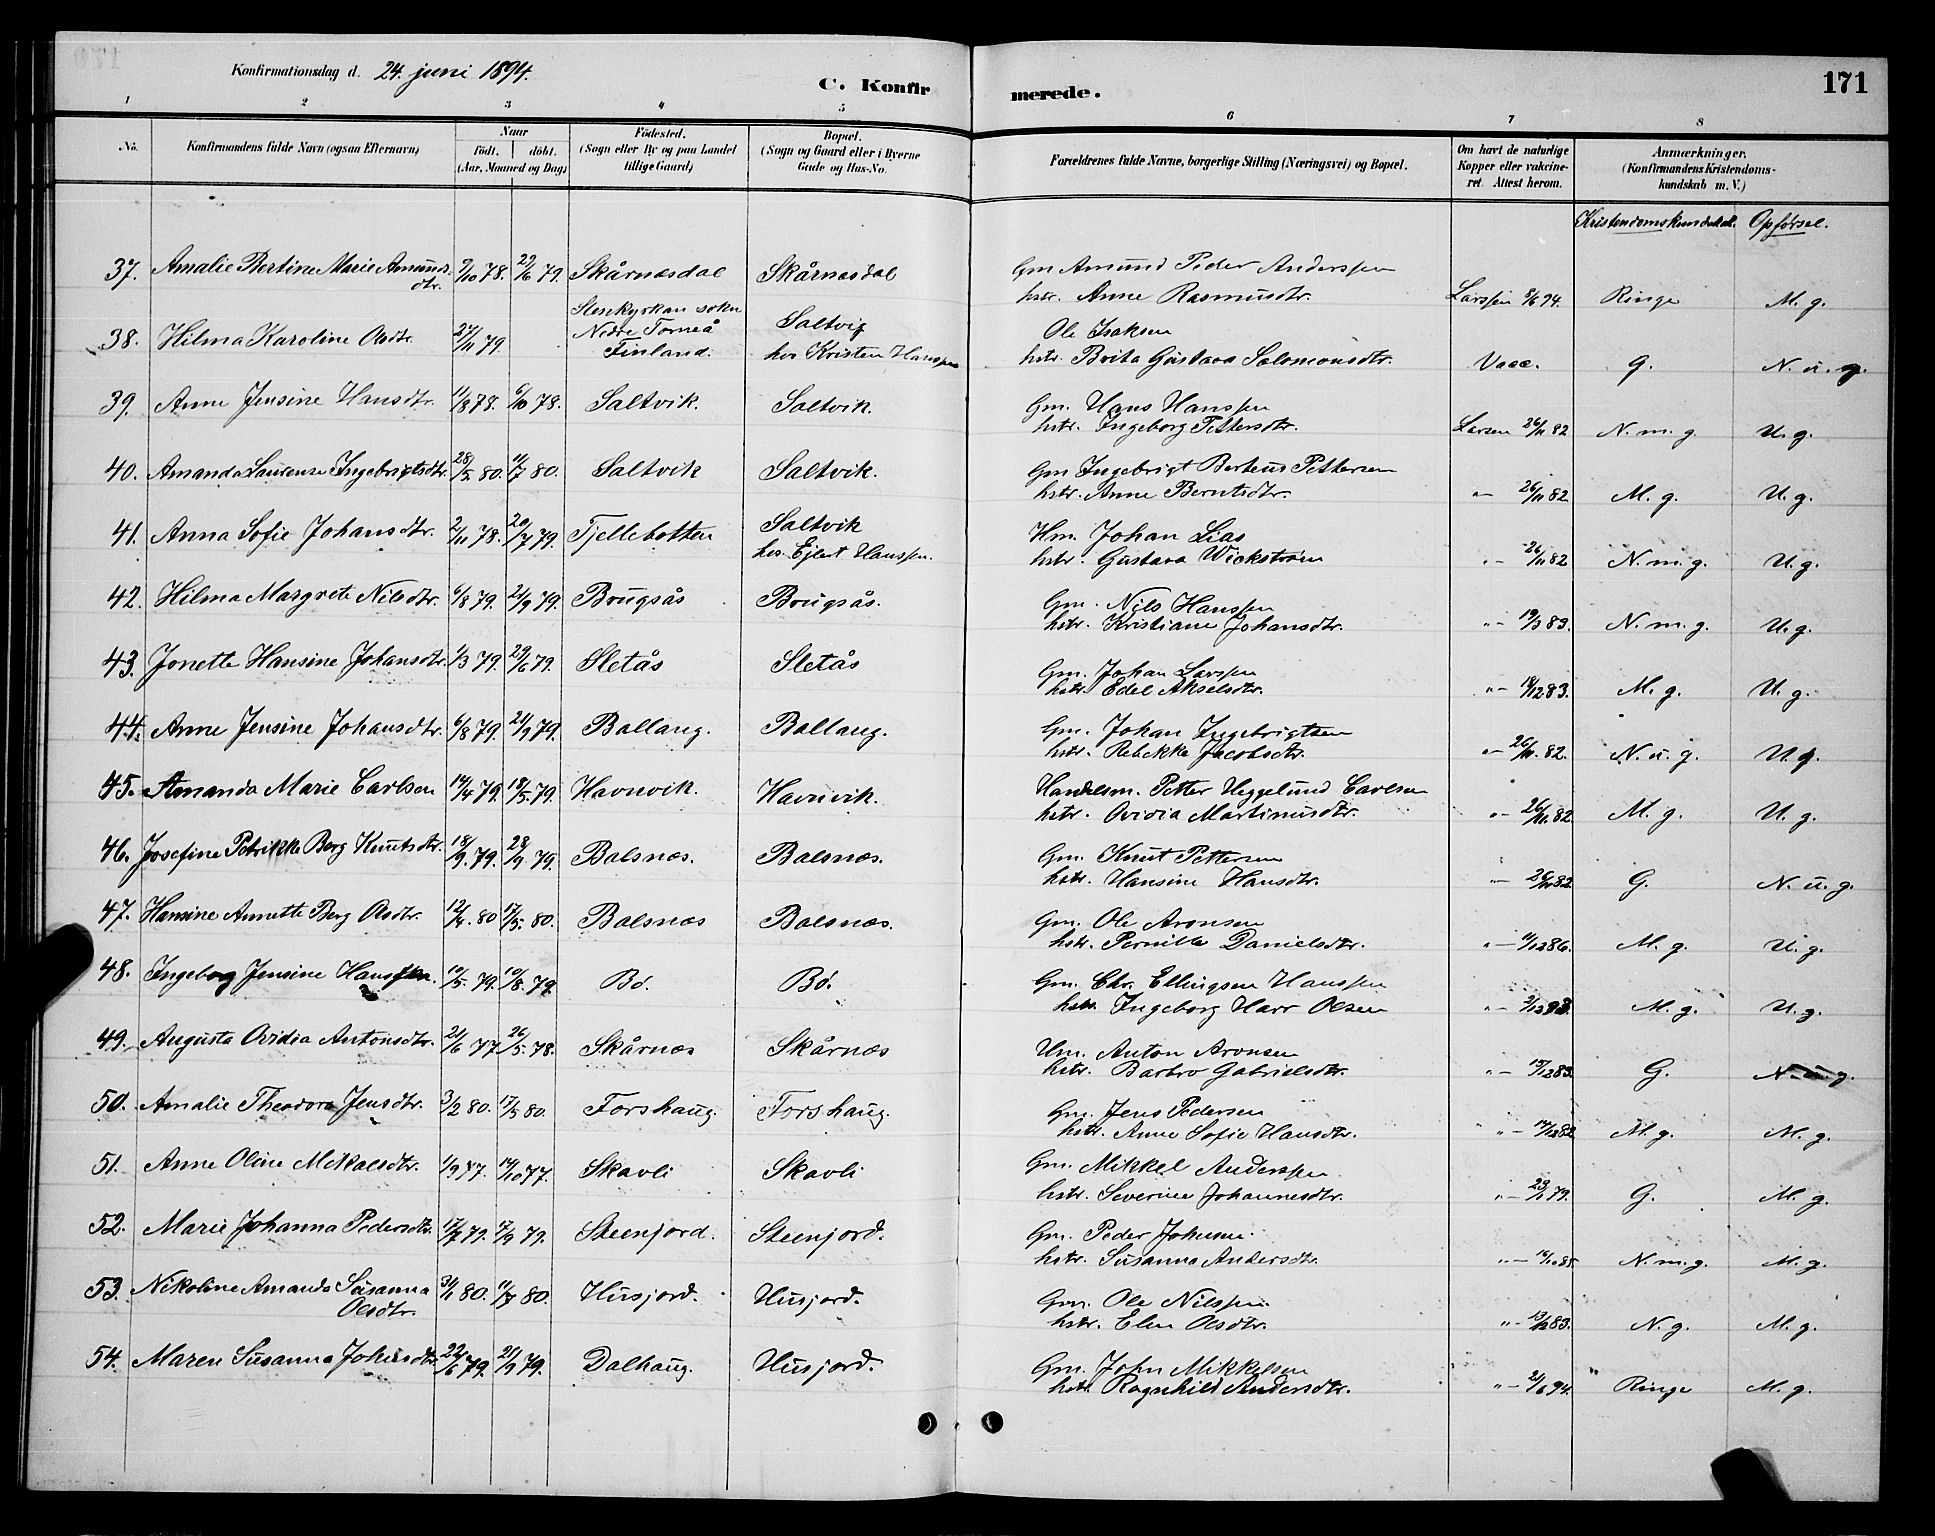 Konfirmationsdag d. 24. juni 1894.
C. Konfir
merede.
171
1 2 3 4 5 6 7 8
No.
Konfirmandens fulde Navn (ogsaa Efternavn)
Naar
født. døbt.
(Aar, Maaned og Dag)
Fødested.
(Sogn eller By og paa Landet
tillige Gaard)
Bopæl.
(Sogn og Gaard eller i Byerne
Gade og Hus-No.
Forældrenes fulde Navne, borgerlige Stilling (Næringsvei) og Bopæl.
Om havt de naturlige
Kopper eller vakcine-
ret. Attest herom.
Anmærkninger.
(Konfirmandens Kristendoms-
kundskab m. V.)
Kristendomskundskab. Opførsel.
37. Amalie Bertine Marie Amunds- 9/10 78. 29/6 79. Skårnæsdal Skårnæsdal Gm Amund Peder Anderssen
dtr. hstr. Anne Rasmusdtr. Larssen 8/6 94. Ringe M. g.
38. Hilma Karoline Olsdtr. 27/11 79. Stenkyrkan sokn
Nedre Torneå
Finland. Saltvig
hos Kristen Hanssen Ole Isaksen
hstr. Brita Gustava Salomonsdtr. Vacc. G. N. u. g.
39. Anne Jensine Hansdtr. 11/8 78. 6/10 78. Saltvik. Saltvik. Gm. Hans Hanssen
hstr. Ingeborg Pettersdtr. Larsen 26/11 82 N. m. g. U. g.
40. Amanda Laurense Ingebrigtsdtr. 28/5 80. 11/7 80. Saltvik Saltvik. Gm Ingebrigt Berteus Pettersen
hstr. Anne Berntsdtr. " — 26/11 82 M. g. U. g.
41. Anna Sofie Johansdtr. 2/11 78. 20/7 79. Tjellebotten Saltvik
hos Ejlert Hanssen. Hm. Johan Lias
hstr. Gustava Wickström " — 26/11 82 N. m. g. U. g.
42. Hilma Margrete Nilsdtr. 6/8 79. 21/9 79. Brugsås Brugsås. Gm. Nils Hanssen
hstr. Kristiane Johansdtr. " — 19/3 83. N. m. g. U. g.
43. Jonette Hansine Johansdtr. 1/3 79. 29/6 79. Sletås Sletås Gm. Johan Larssen
hstr. Edel Akselsdtr. " — 18/12 83. M. g. U. g.
44. Anne Jensine Johansdtr. 6/8 79. 21/9 79. Ballang. Ballang. Gm. Johan Ingebrigtsen
hstr. Rebekka Jacobsdtr. " — 26/11 82. N. u. g. U. g.
45. Amanda Marie Carlsen 14/4 79. 18/5 79. Havnvik. Havnvik. Handelsm. Petter Heggelund Carlsen
hstr. Ovidia Martinusdtr. " — 26/11 82. M. g. U. g.
46. Josefine Petrikke Berg Knutsdtr. 18/9 79. 28/9 79. Balsnæs. Balsnæs. Gm. Knut Pettersen
hstr. Hansine Hansdtr. " — 26/11 82 G. N. u. g.
47. Hansine Annette Berg Olsdtr. 12/4 80 17/5 80. Balsnæs Balsnæs. Gm. Ole Aronsen
hstr. Pernille Danielsdtr. " — 11/12 86. M. g. U. g.
48. Ingeborg Jensine Hanssen. 10/5 79. 10/8 79. Bø. Bø. Gm. Chr. Ellingsen Hanssen
hstr. Ingeborg Harr Olsen " — 3/12 83. M. g. U. g.
49. Augusta Ovidia Antonsdtr. 21/6 77. 26/5 78. Skårnæs Skårnæs Um. Anton Aronsen
hstr. Barbro Gabrielsdtr. " — 15/12 83. G. N. u. g.
50. Amalie Theodora Jensdtr. 3/2 80. 17/5 80. Forshaug. Forshaug. Gm. Jens Pedersen
hstr. Anne Sofie Hansdtr. " — 14/12 82 M. g. M. g.
51. Anne Oline Mikalsdtr. 1/9 77. 14/10 77. Skavli Skavli Gm. Mikkel Anderssen
hstr. Severine Johannesdtr. " — 29/11 79. G. M. g.
52. Marie Johanna Pedersdtr. 17/7 79. 17/9 79. Steenjord. Steenjord. Gm. Peder Johnsen.
hstr. Susanna Andersdtr. " — 14/10 85. N. m. g. M. g.
53. Nikoline Amanda Susanna
Olsdtr. 31/1 80. 11/7 80. Husjord. Husjord. Gm. Ole Nilssen.
hstr. Elen Olsdtr. " — 13/12 83. N. g. M. g.
54. Maren Susanna Johnsdtr. 22/6 79. 21/9 79. Dalhaug. Husjord. Gm. John Mikkelsen
hstr. Ragnhild Andersdtr. " — 21/6 94. Ringe M. g.